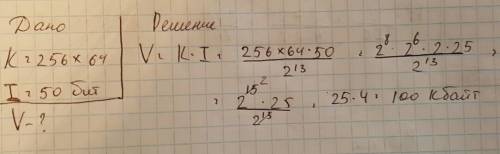 Дано
K = 256 × 64
I = 50 бит
V - ?
Решение
V = K · I = 256 × 64 · 50 / 2^13 = 2^8 · 2^6 · 2 · 25 / 2^13 =
= 2^15 2 · 25 / 2^13 = 25 · 4 = 100 Кбайт